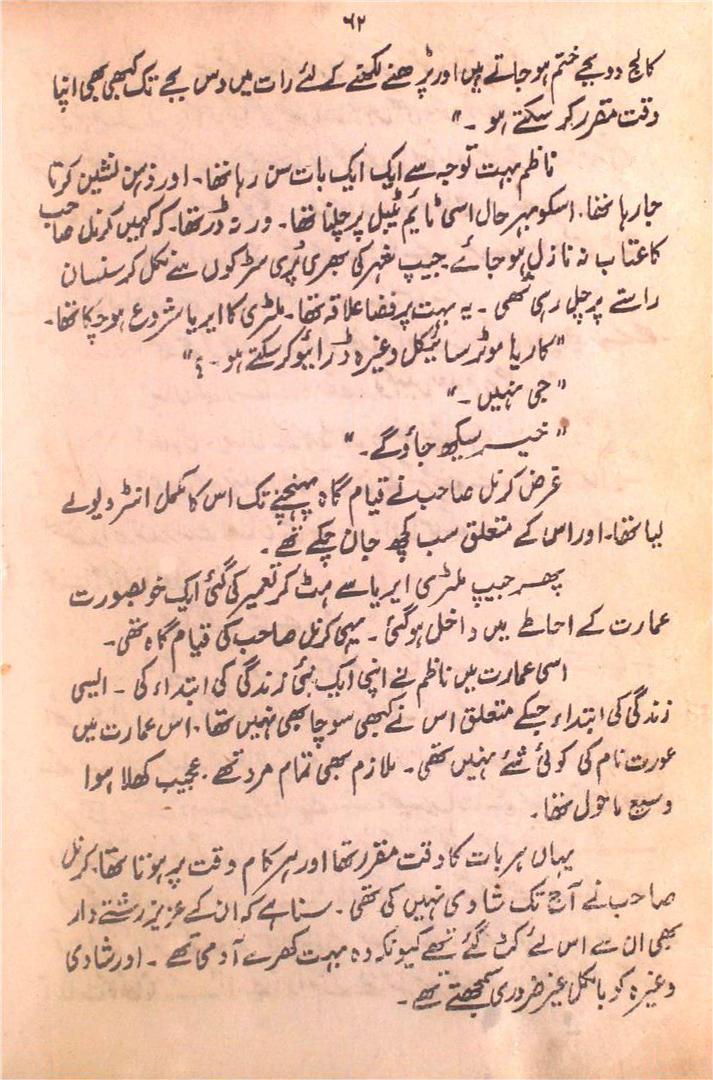 ۶۲
کالج دو بجے ختم ہو جاتے ہیں اور پڑھنے لکھنے کے لئے رات میں دس بجے تک کبھی بھی اپنا
وقت مقرر کر سکتے ہو ۔"
ناظم بہت توجہ سے ایک ایک بات سن رہا تھا۔ اور ذہن نشین کرتا
جا رہا تھا۔ اسکو بہر حال اسی ٹائم ٹیبل پر چلنا تھا۔ ورنہ ڈر تھا۔ کہ کہیں کرنل صاحب
کا عتاب نہ نازل ہو جائے۔ جیپ شہر کی بھری پُری سڑکوں سے نکل کر سنسان
راستے پر چل رہی تھی ۔ یہ بہت پر فضا علاقہ تھا۔ ملٹری کا ایریا شروع ہو چکا تھا۔
"کار یا موٹر سائیکل وغیرہ ڈرائیو کر سکتے ہو ۔ ؟"
"جی نہیں ۔"
"خیر سیکھ جاؤ گے ۔"
غرض کرنل صاحب نے قیام گاہ پہنچنے تک اس کا مکمل انٹرویو لے
لیا تھا۔ اور اس کے متعلق سب کچھ جان چکے تھے ۔
پھر جیپ ملٹری ایریا سے ہٹ کر تعمیر کی گئی ایک خوبصورت
عمارت کے احاطے میں داخل ہو گئی ۔ یہی کرنل صاحب کی قیام گاہ تھی۔
اسی عمارت میں ناظم نے اپنی ایک نئی زندگی کی ابتداء کی ۔ ایسی
زندگی کی ابتداء جسکے متعلق اس نے کبھی سوچا بھی نہیں تھا۔ اس عمارت میں
عورت نام کی کوئی شئے نہیں تھی ۔ ملازم بھی تمام مرد تھے۔ عجیب کھلا ہوا
وسیع ماحول تھا۔
یہاں ہر بات کا وقت مقرر تھا اور ہر کام وقت پر ہوتا تھا۔ کرنل
صاحب نے آج تک شادی نہیں کی تھی ۔ سنا ہے کہ ان کے عزیز رشتے دار
بھی ان سے اس لئے کٹ گئے تھے کیونکہ وہ بہت کھرے آدمی تھے ۔ اور شادی
وغیرہ کو بالکل غیر ضروری سمجھتے تھے ۔